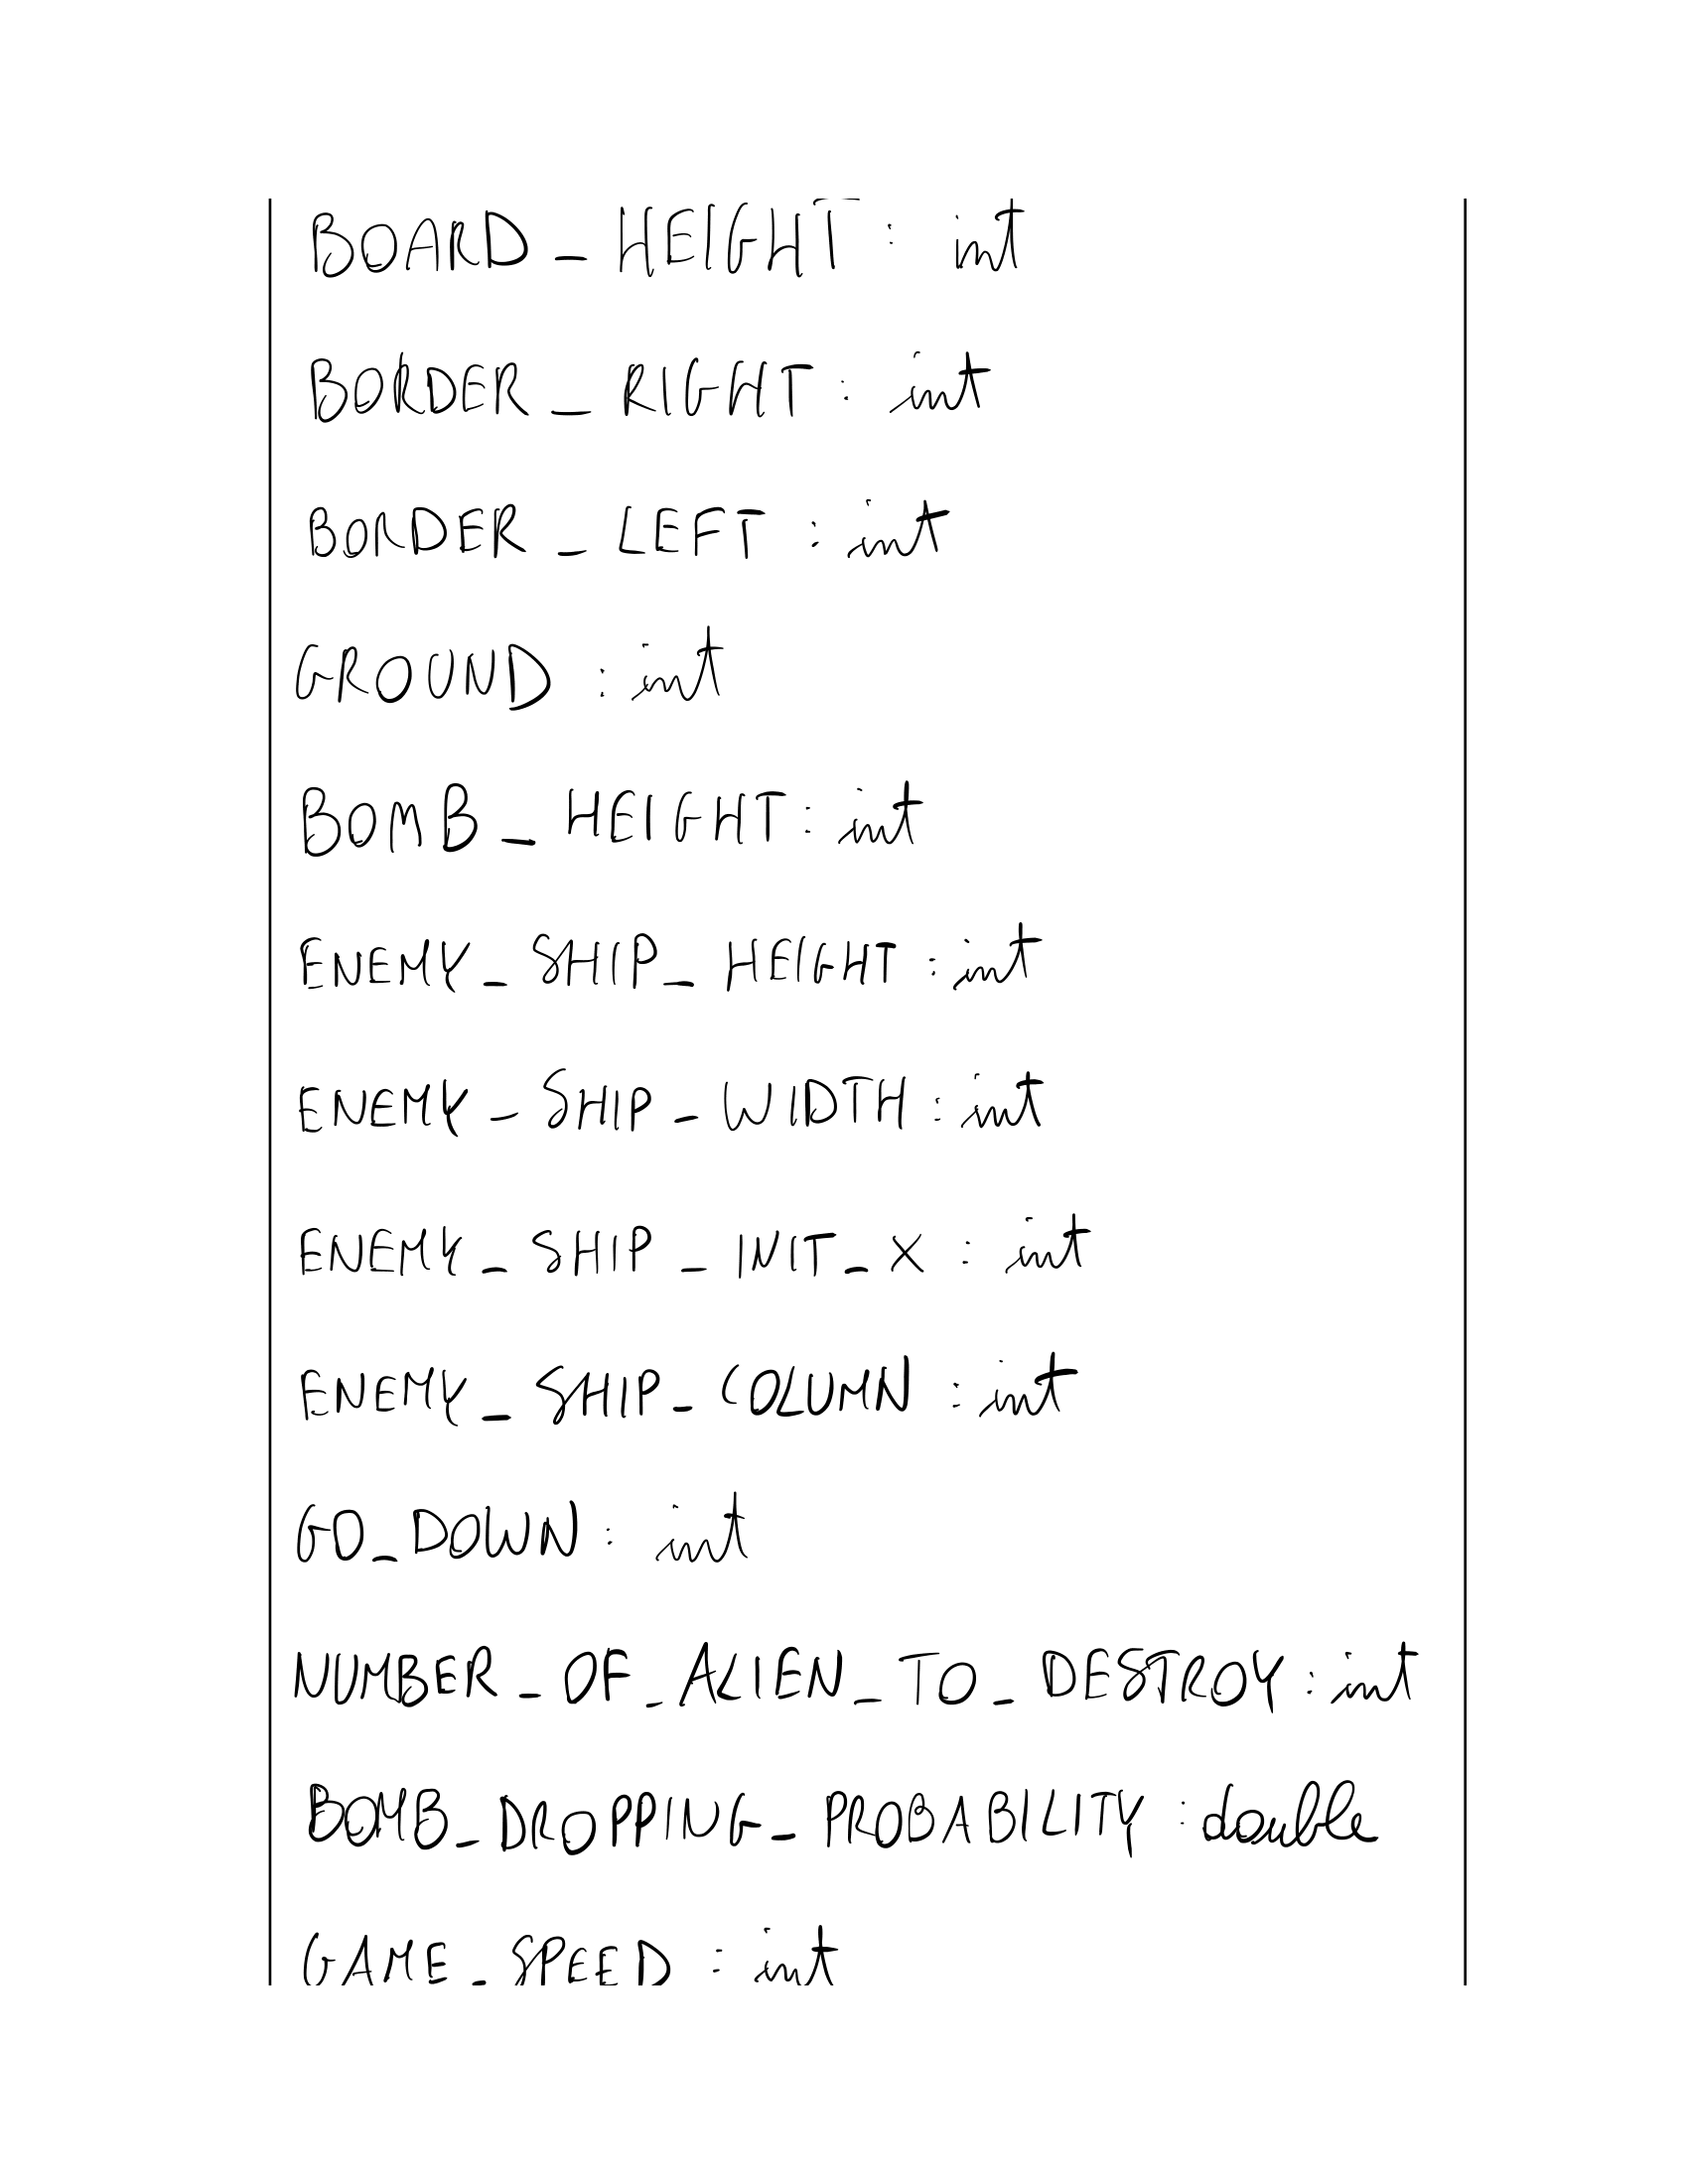 BOARD_HEIGHT : int
BORDER_RIGHT : int
BORDER_LEFT : int
GROUND : int
BOMB_HEIGHT : int
ENEMY_SHIP_HEIGHT : int
ENEMY_SHIP_WIDTH : int
ENEMY_SHIP_INIT_X : int
ENEMY_SHIP_COLUMN : int
GO_DOWN : int
NUMBER_OF_ALIEN_TO_DESTROY : int
BOMB_DROPPING_PROBABILITY : double
GAME_SPEED : int